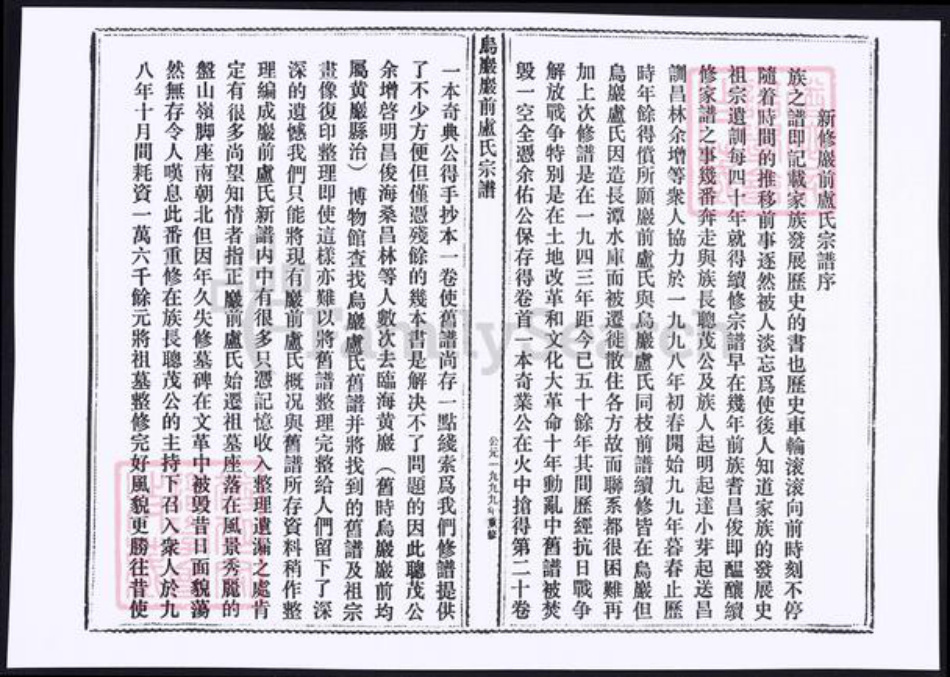 新修巖前盧氏宗譜序
族之譜即記載家族發展歷史的書也歷史車輪滚滚向前時刻不停
隨着時間的推移前事逐然被人淡忘爲使後人知道家族的發展史
祖宗遺訓每四十年就得續修宗譜早在幾年前族耆昌俊即醖釀續
修家譜之事幾番奔走與族長聰茂公及族人起明起達小芽起送昌
訓昌林余增等衆人協力於一九九八年初春開始九九年暮春止歷
時年餘得償所願巖前盧氏與烏巖盧氏同枝前譜續修皆在烏巖但
烏巖盧氏因造長潭水庫而被遷徙散住各方故而聯系都很困難再
加上次修譜是在一九四三年距今已五十餘年其間歷經抗日戰争
解放戰争特别是在土地改革和文化大革命十年動亂中舊譜被焚
毀一空全憑余佑公保存得卷首一本奇業公在火中搶得第二十卷
烏巖巖前盧氏宗譜
公元一九九九年重修
一本奇典公得手抄本一卷使舊譜尚存一點綫索爲我們修譜提供
了不少方便但僅憑殘餘的幾本書是解决不了問題的因此聰茂公
余增啓明昌俊海桑昌林等人數次去臨海黄巖（舊時烏巖巖前均
屬黄巖縣治）博物館查找烏巖盧氏舊譜并將找到的舊譜及祖宗
畫像復印整理即使這樣亦難以將舊譜整理完整給人們留下了深
深的遺憾我們只能將現有巖前盧氏概况與舊譜所存資料稍作整
理編成巖前盧氏新譜内中有很多只憑記憶收入整理遺漏之處肯
定有很多尚望知情者指正巖前盧氏始遷祖墓座落在風景秀麗的
盤山嶺脚座南朝北但因年久失修墓碑在文革中被毁昔日面貌蕩
然無存令人嘆息此番重修在族長聰茂公的主持下召入衆人於九
八年十月間耗資一萬六千餘元將祖墓整修完好風貌更勝往昔使
FamilySearch